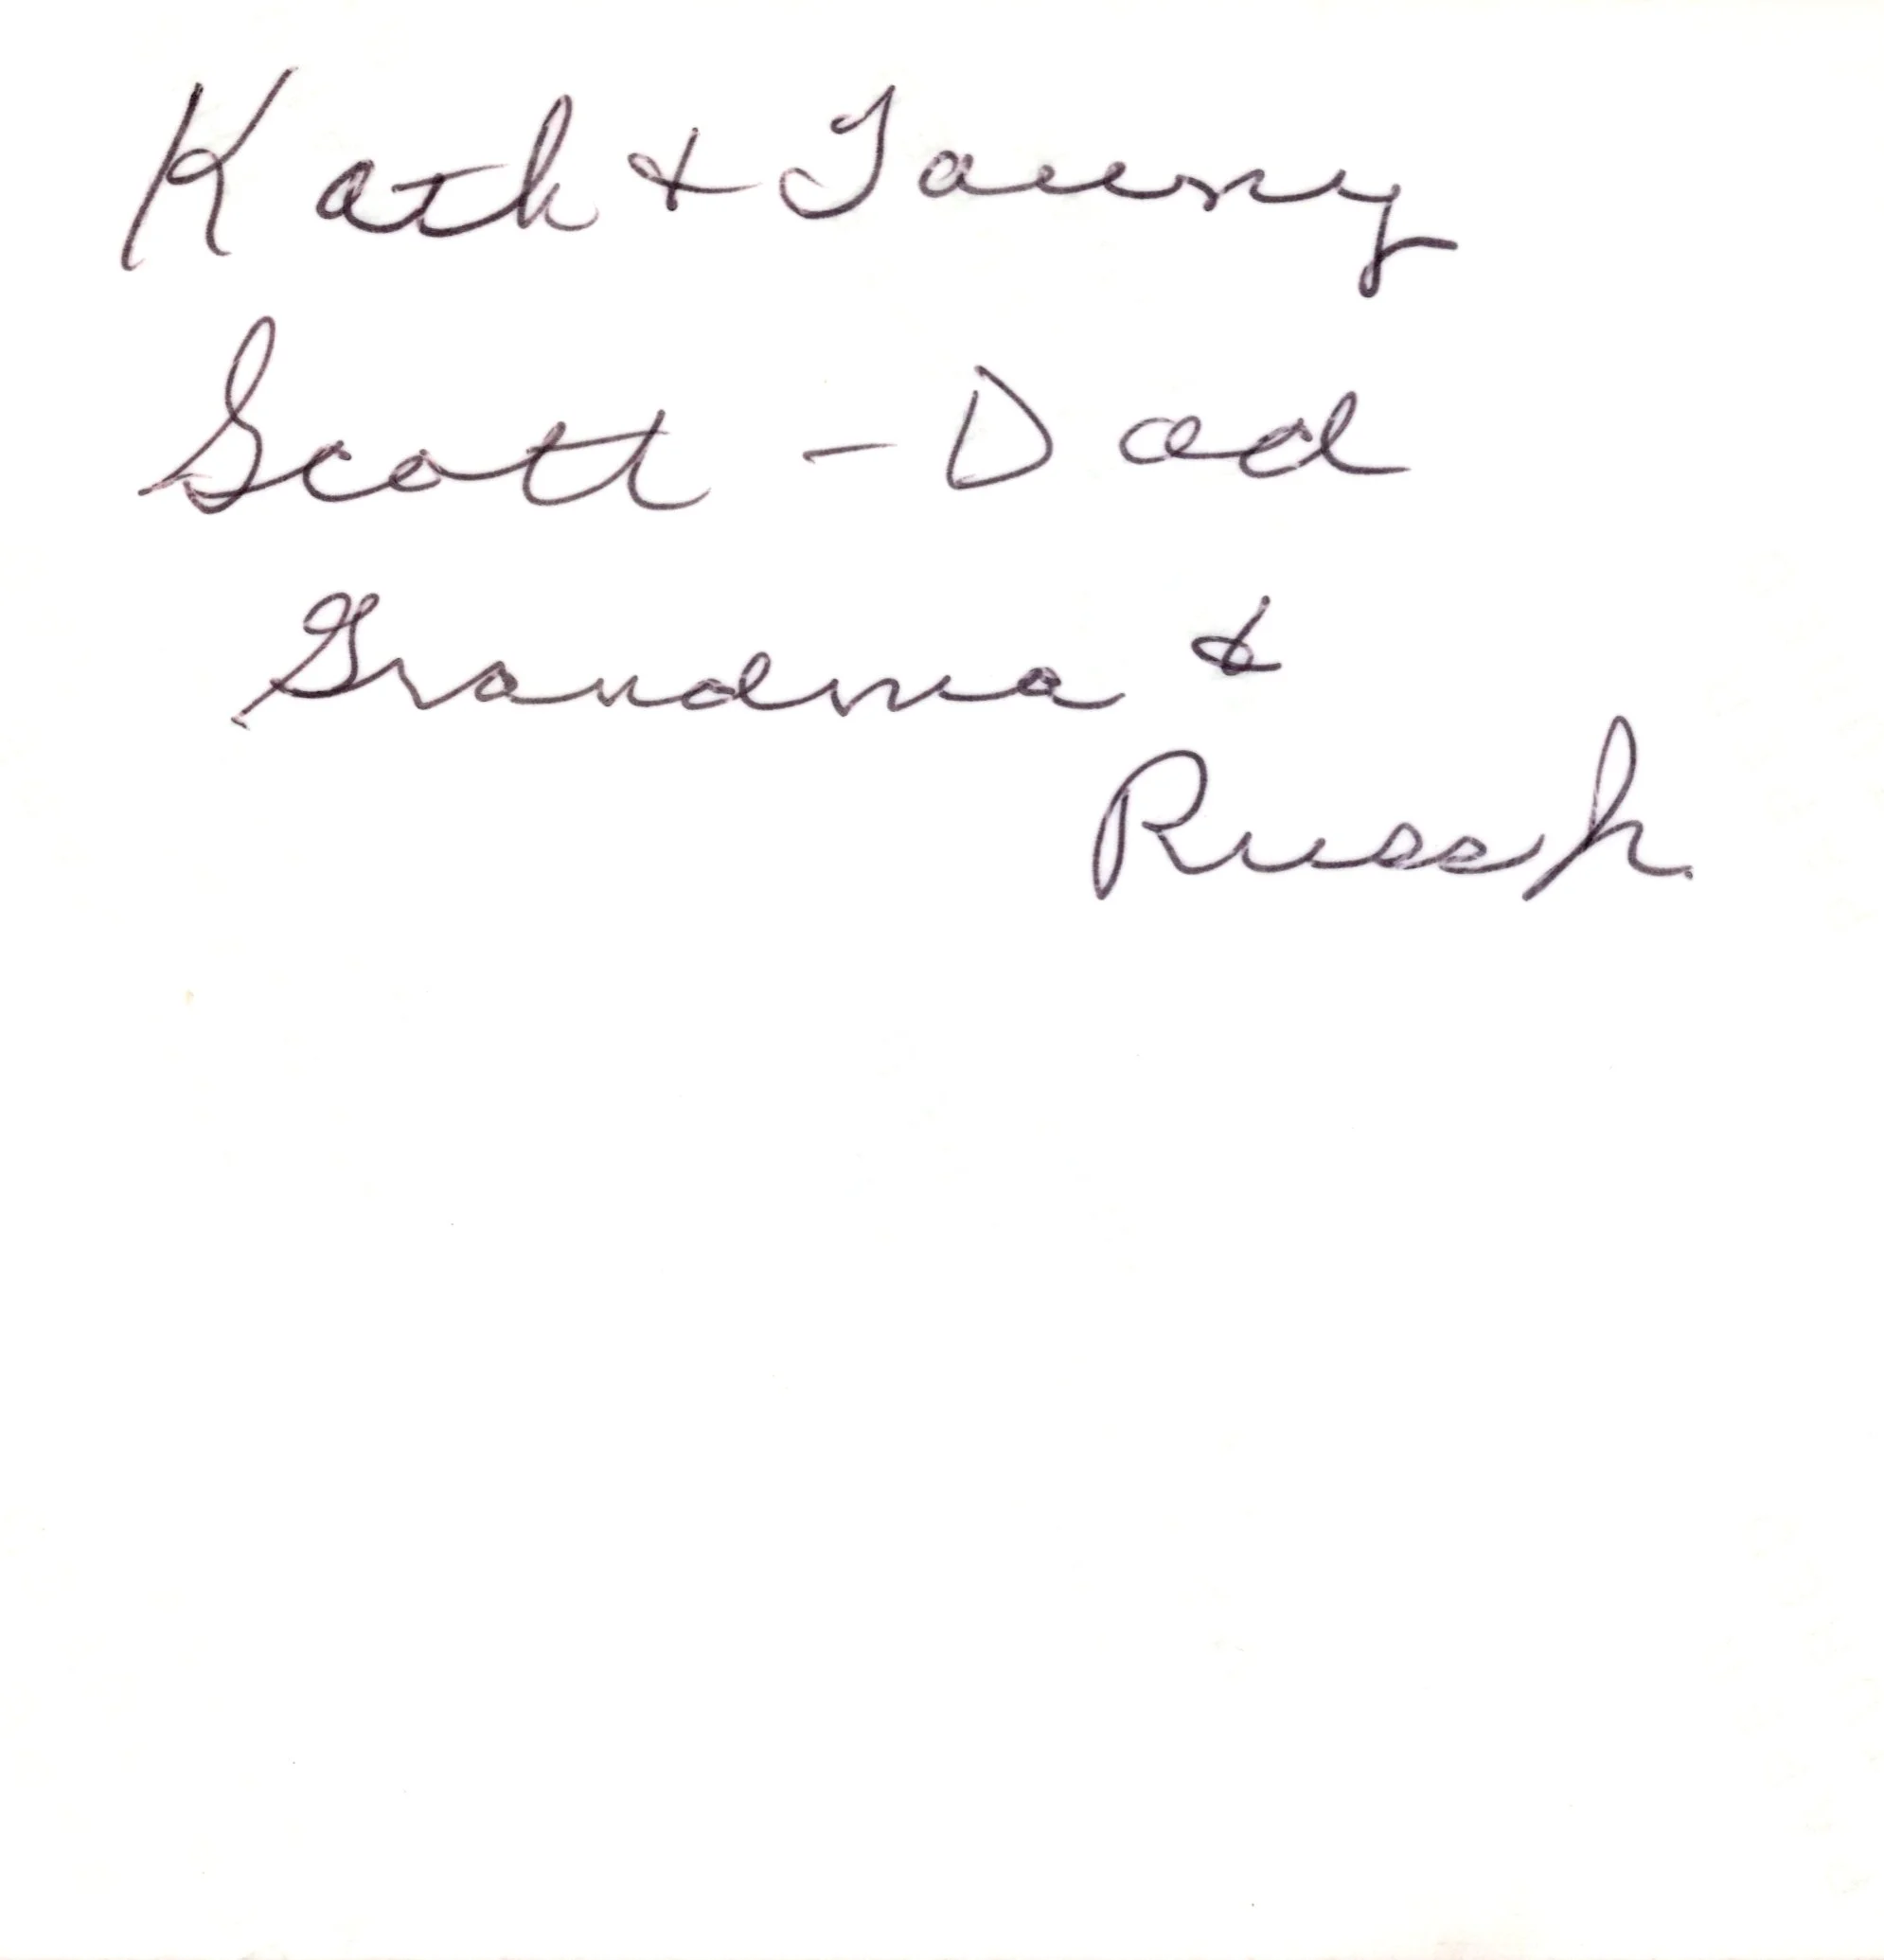 Kath & Tawny
Scott - Dad
Grandma &
Russh